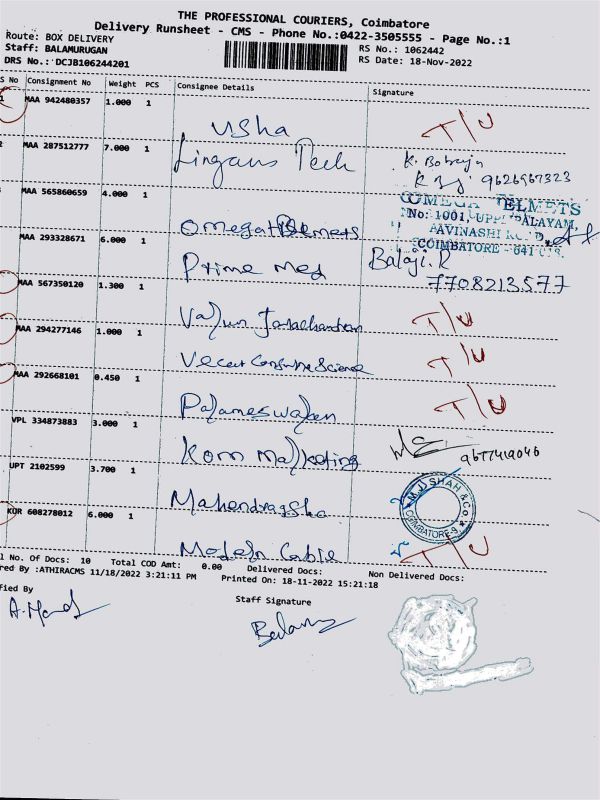 THE PROFESSIONAL COURIERS, Coimbatore
Delivery Runsheet - CMS - Phone No.:0422-3505555 - Page No.:1
Route: BOX DELIVERY
Staff: BALAMURUGAN
DRS No.: DCJB106244201
RS No.: 1062442
RS Date: 18-Nov-2022
S No Consignment No Weight PCS Consignee Details Signature
1 MAA 942480357 1.000 1
Usha T/U
2 MAA 287512777 7.000 1
Lingans Tech K. Botraja
9626967323
MAA 565860659 4.000 1
OMEGA HELMETS
No: 1001, UPPILIPALAYAM,
AAVINASHI ROAD,
COIMBATORE - 641 018.
Omega Helmets
MAA 293328671 6.000 1
Prime Med Balaji.R
7708213577
MAA 567350120 1.300 1
Varjun Janachandran T/U
MAA 294277146 1.000 1
Science T/U
MAA 292668101 0.450 1
Parameswaren T/U
VPL 334873883 3.000 1
Kom Marketing 9677419046
UPT 2102599 3.700 1
Mahendra Sha
M.J. SHAH & Co.
COIMBATORE-9
KOR 608278012 6.000 1
Modern Cable T/U
l No. Of Docs: 10 Total COD Amt: 0.00 Delivered Docs: Non Delivered Docs:
red By :ATHIRACMS 11/18/2022 3:21:11 PM Printed On: 18-11-2022 15:21:18
fied By
Staff Signature